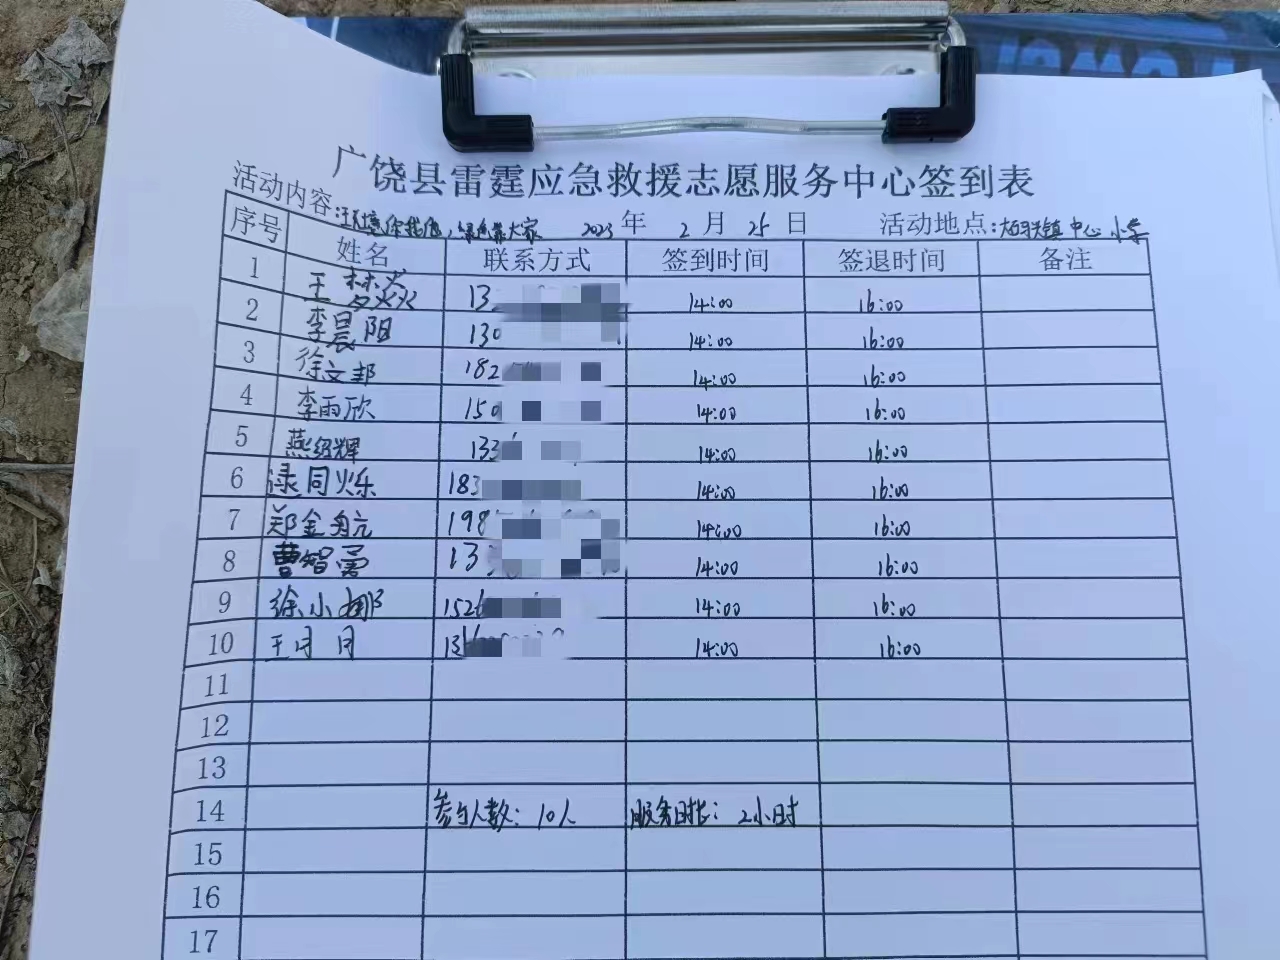 广饶县雷霆应急救援志愿服务中心签到表
活动内容:环境保护你我他,绿色靠大家 2023年 2月 25日 活动地点:大码头镇中心小学
序号 姓名 联系方式 签到时间 签退时间 备注
1 王 13 14:00 16:00
2 李晨阳 130 14:00 16:00
3 徐文邦 182 14:00 16:00
4 李雨欣 150 14:00 16:00
5 燕绍辉 133 14:00 16:00
6 逯同烁 183 14:00 16:00
7 郑金航 198 14:00 16:00
8 曹智勇 13 14:00 16:00
9 徐小娜 1526 14:00 16:00
10 王月月 13 14:00 16:00
11
12
13
14 参与人数:10人 服务时长:2小时
15
16
17